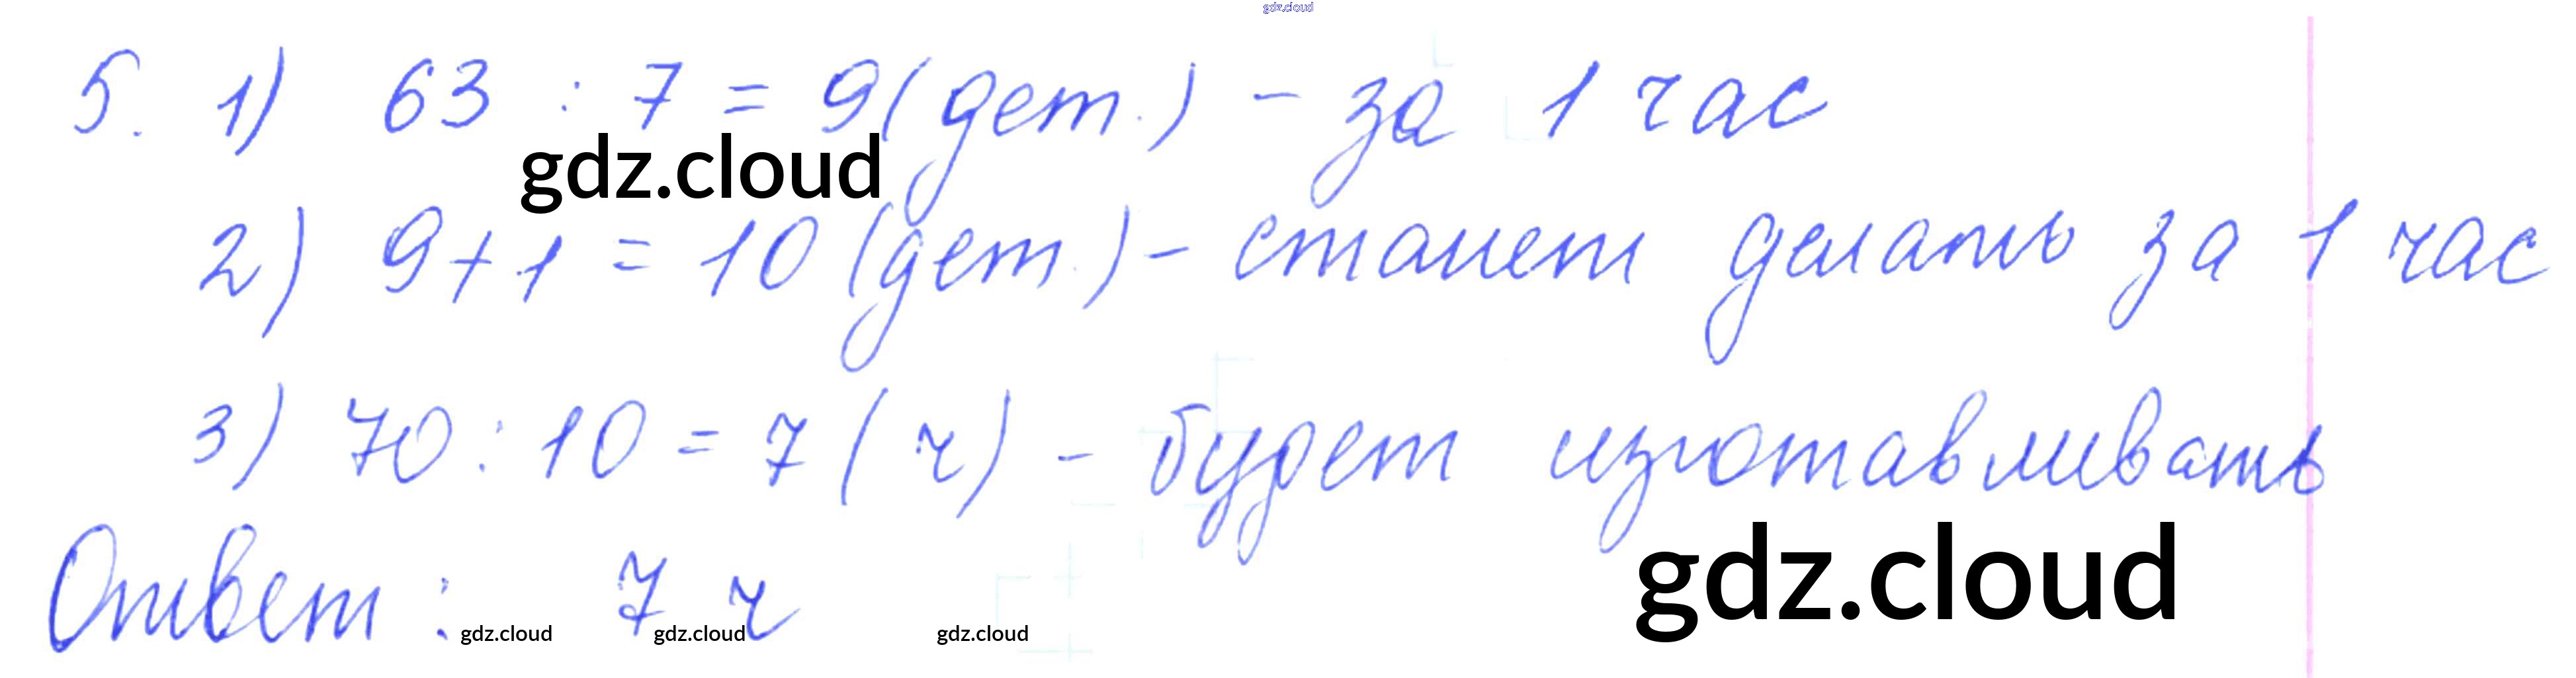 gdz.cloud
5. 1) 63 : 7 = 9 (дет.) - за 1 час
gdz.cloud
2) 9 + 1 = 10 (дет.) - станет делать за 1 час
3) 70 : 10 = 7 (ч) - будет изготавливать
gdz.cloud
Ответ: 7 ч
gdz.cloud gdz.cloud gdz.cloud